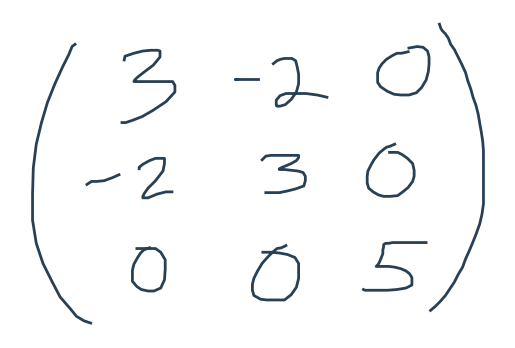 3 -2 0
-2 3 0
0 0 5